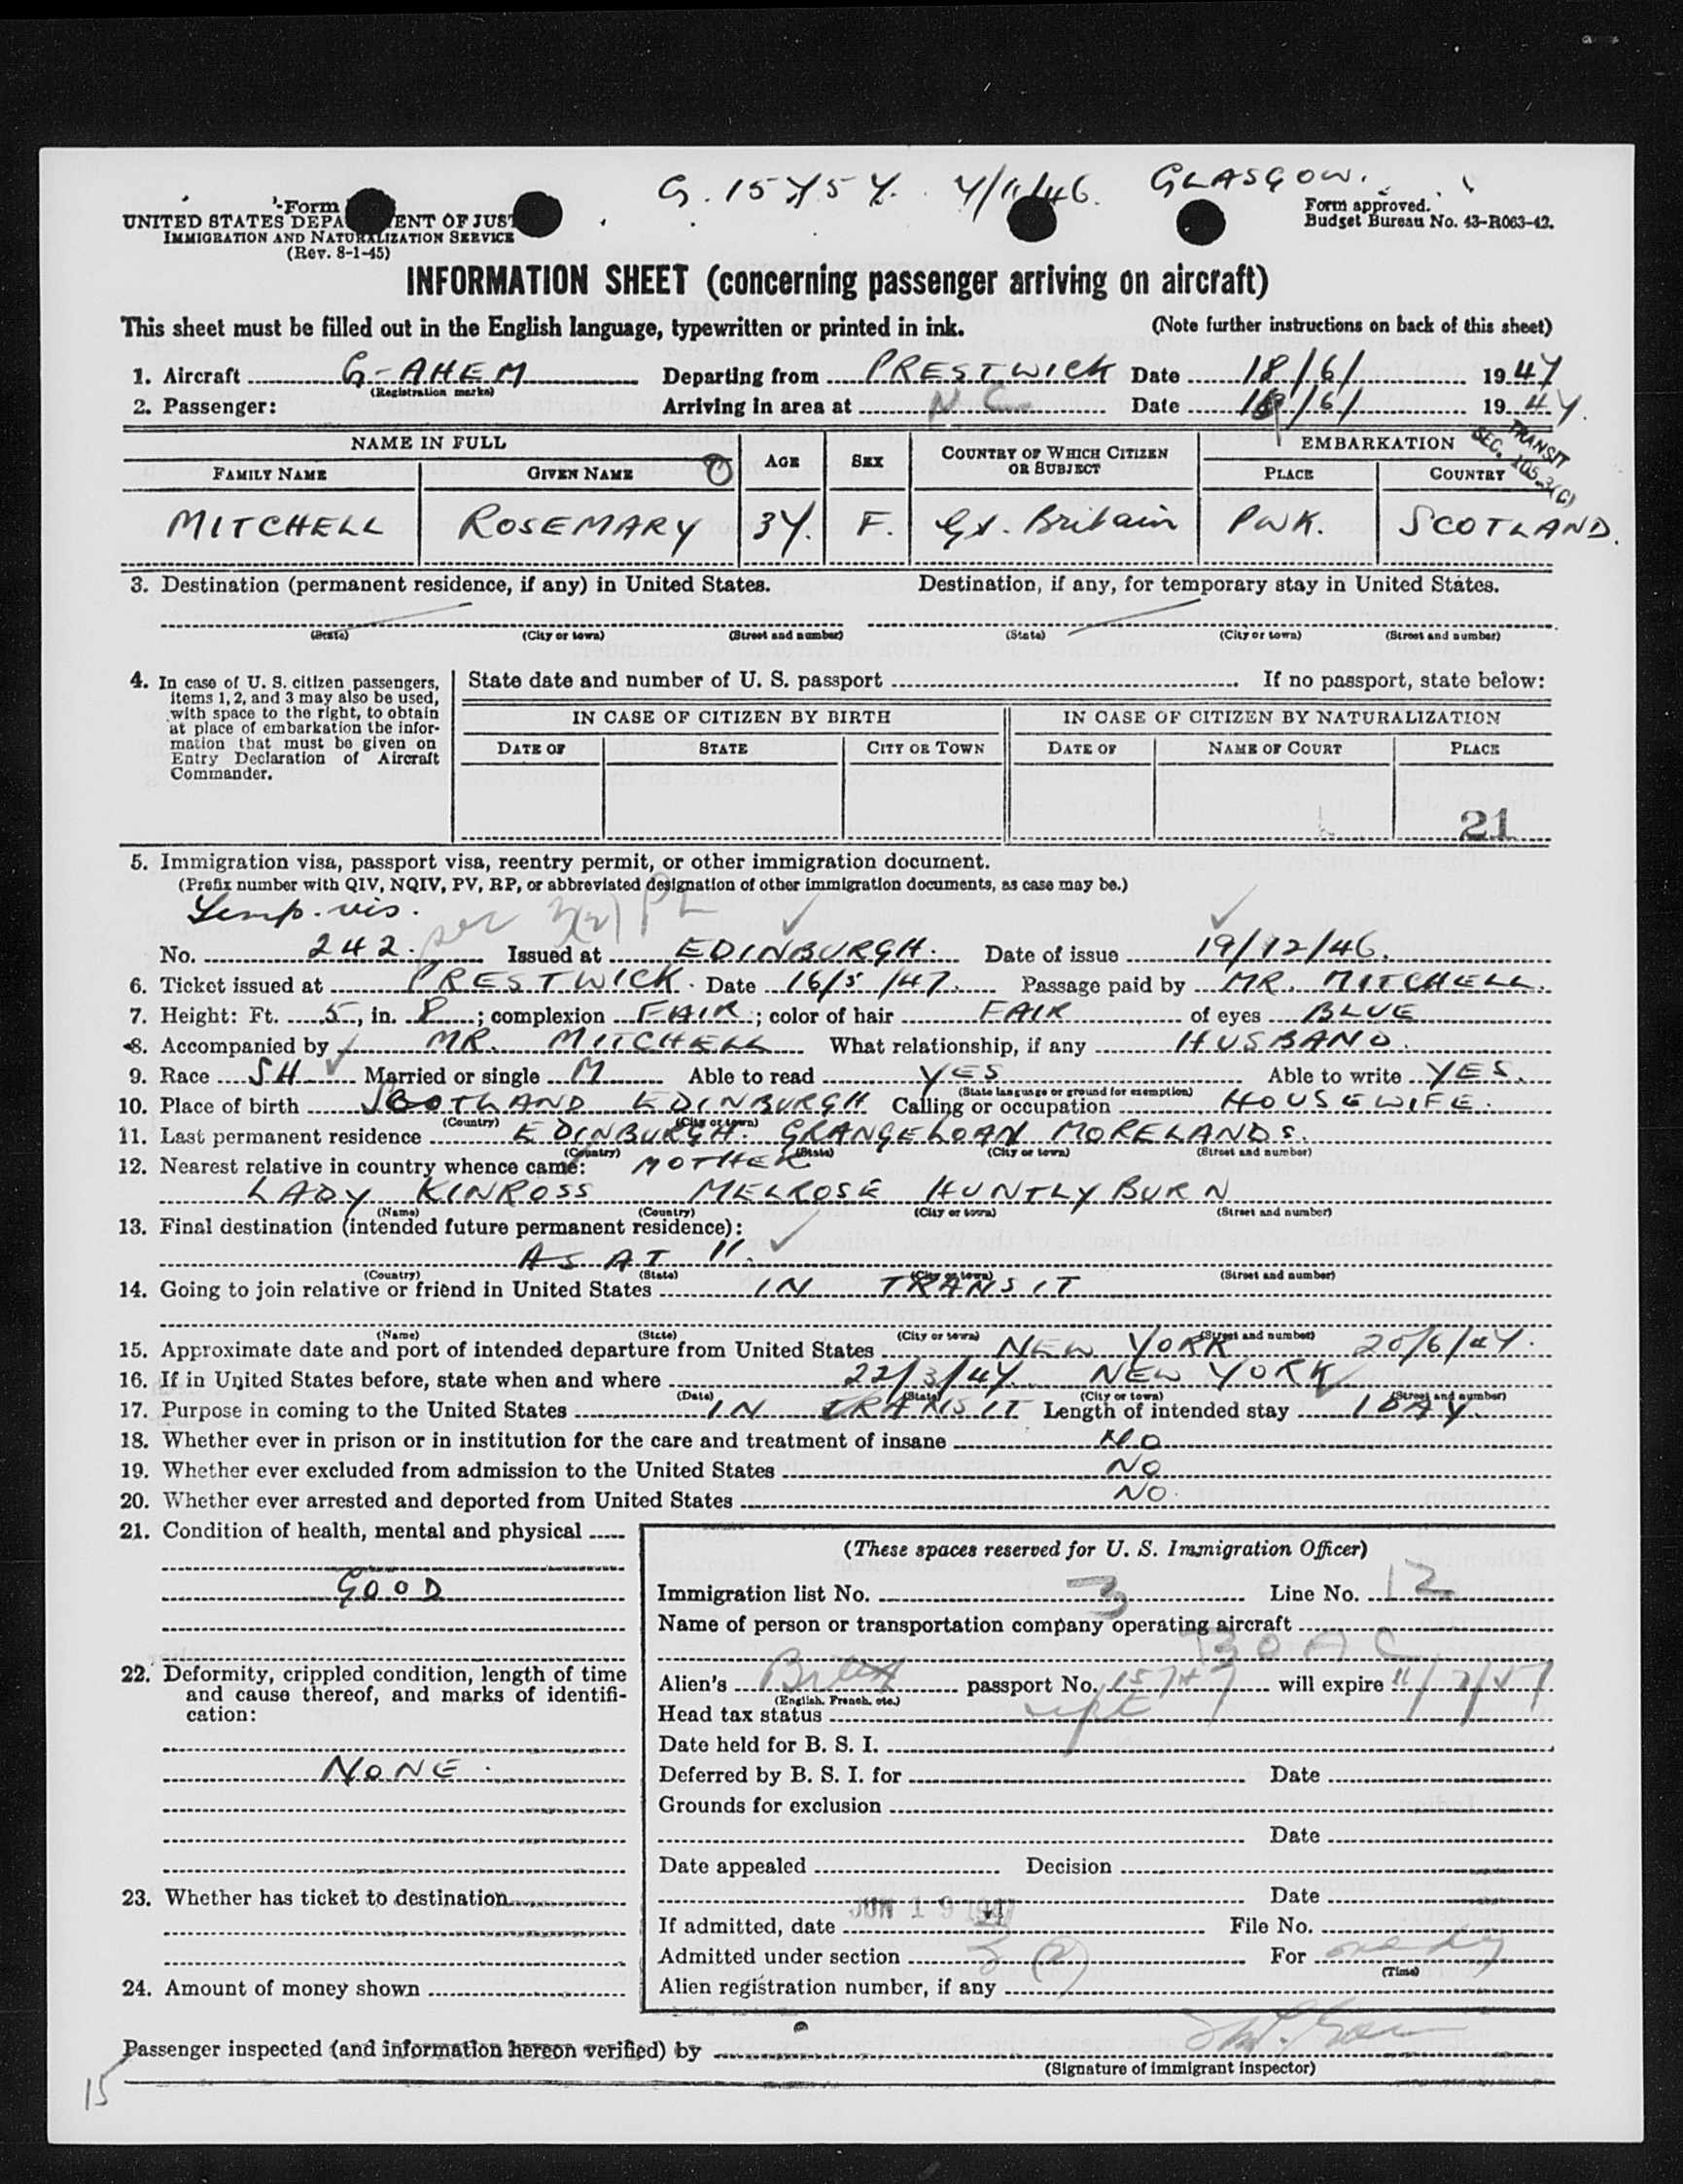 G. 15757. 7/11/46. GLASGOW.
Form
UNITED STATES DEPA ENT OF JUST
IMMIGRATION AND NATURALIZATION SERVICE
(Rev. 8-1-45)
Form approved.
Budget Bureau No. 43-R063-42.
INFORMATION SHEET (concerning passenger arriving on aircraft)
This sheet must be filled out in the English language, typewritten or printed in ink. (Note further instructions on back of this sheet)
1. Aircraft G-AHEM Departing from PRESTWICK Date 18/6/ 1947
(Registration marks)
2. Passenger: Arriving in area at Date 19/6/ 1947.
TRANSIT
SEC. 105.3(C)
NAME IN FULL AGE SEX COUNTRY OF WHICH CITIZEN OR SUBJECT EMBARKATION
FAMILY NAME GIVEN NAME PLACE COUNTRY
MITCHELL ROSEMARY 37. F. Gt. Britain PWK. SCOTLAND.
3. Destination (permanent residence, if any) in United States. Destination, if any, for temporary stay in United States.
(State) (City or town) (Street and number) (State) (City or town) (Street and number)
4. In case of U. S. citizen passengers, items 1, 2, and 3 may also be used, with space to the right, to obtain at place of embarkation the information that must be given on Entry Declaration of Aircraft Commander.
State date and number of U. S. passport If no passport, state below:
IN CASE OF CITIZEN BY BIRTH IN CASE OF CITIZEN BY NATURALIZATION
DATE OF STATE CITY OR TOWN DATE OF NAME OF COURT PLACE
21
5. Immigration visa, passport visa, reentry permit, or other immigration document.
(Prefix number with QIV, NQIV, PV, RP, or abbreviated designation of other immigration documents, as case may be.)
Temp. vis.
No. 242. Issued at EDINBURGH. Date of issue 19/12/46.
6. Ticket issued at PRESTWICK. Date 16/5/47. Passage paid by MR. MITCHELL.
7. Height: Ft. 5, in. 8; complexion FAIR; color of hair FAIR of eyes BLUE
8. Accompanied by MR. MITCHELL What relationship, if any HUSBAND.
9. Race SH Married or single M Able to read YES Able to write YES.
(State language or ground for exemption)
10. Place of birth SCOTLAND EDINBURGH Calling or occupation HOUSEWIFE.
(Country) (City or town)
11. Last permanent residence EDINBURGH. GRANGELOAN MORELANDS.
(Country) (State) (City or town) (Street and number)
12. Nearest relative in country whence came: MOTHER
LADY KINROSS MELROSE HUNTLYBURN
(Name) (Country) (City or town) (Street and number)
13. Final destination (intended future permanent residence):
AS AT 11.
(Country) (State) (City or town) (Street and number)
14. Going to join relative or friend in United States IN TRANSIT
(Name) (State) (City or town) (Street and number)
15. Approximate date and port of intended departure from United States NEW YORK 20/6/47.
16. If in United States before, state when and where 22/3/47. NEW YORK
(Date) (State) (City or town) (Street and number)
17. Purpose in coming to the United States IN TRANSIT Length of intended stay 1 DAY.
18. Whether ever in prison or in institution for the care and treatment of insane NO
19. Whether ever excluded from admission to the United States NO
20. Whether ever arrested and deported from United States NO.
21. Condition of health, mental and physical
GOOD
22. Deformity, crippled condition, length of time and cause thereof, and marks of identification:
NONE.
23. Whether has ticket to destination
24. Amount of money shown
(These spaces reserved for U. S. Immigration Officer)
Immigration list No. 3 Line No. 12
Name of person or transportation company operating aircraft
BOAC
Alien's passport No. 15747 will expire
(English, French, etc.)
Head tax status
Date held for B. S. I.
Deferred by B. S. I. for Date
Grounds for exclusion
Date
Date appealed Decision
Date
JUN 19 1947
If admitted, date File No.
Admitted under section 3 (2) For one day
(Time)
Alien registration number, if any
Passenger inspected (and information hereon verified) by
(Signature of immigrant inspector)
15